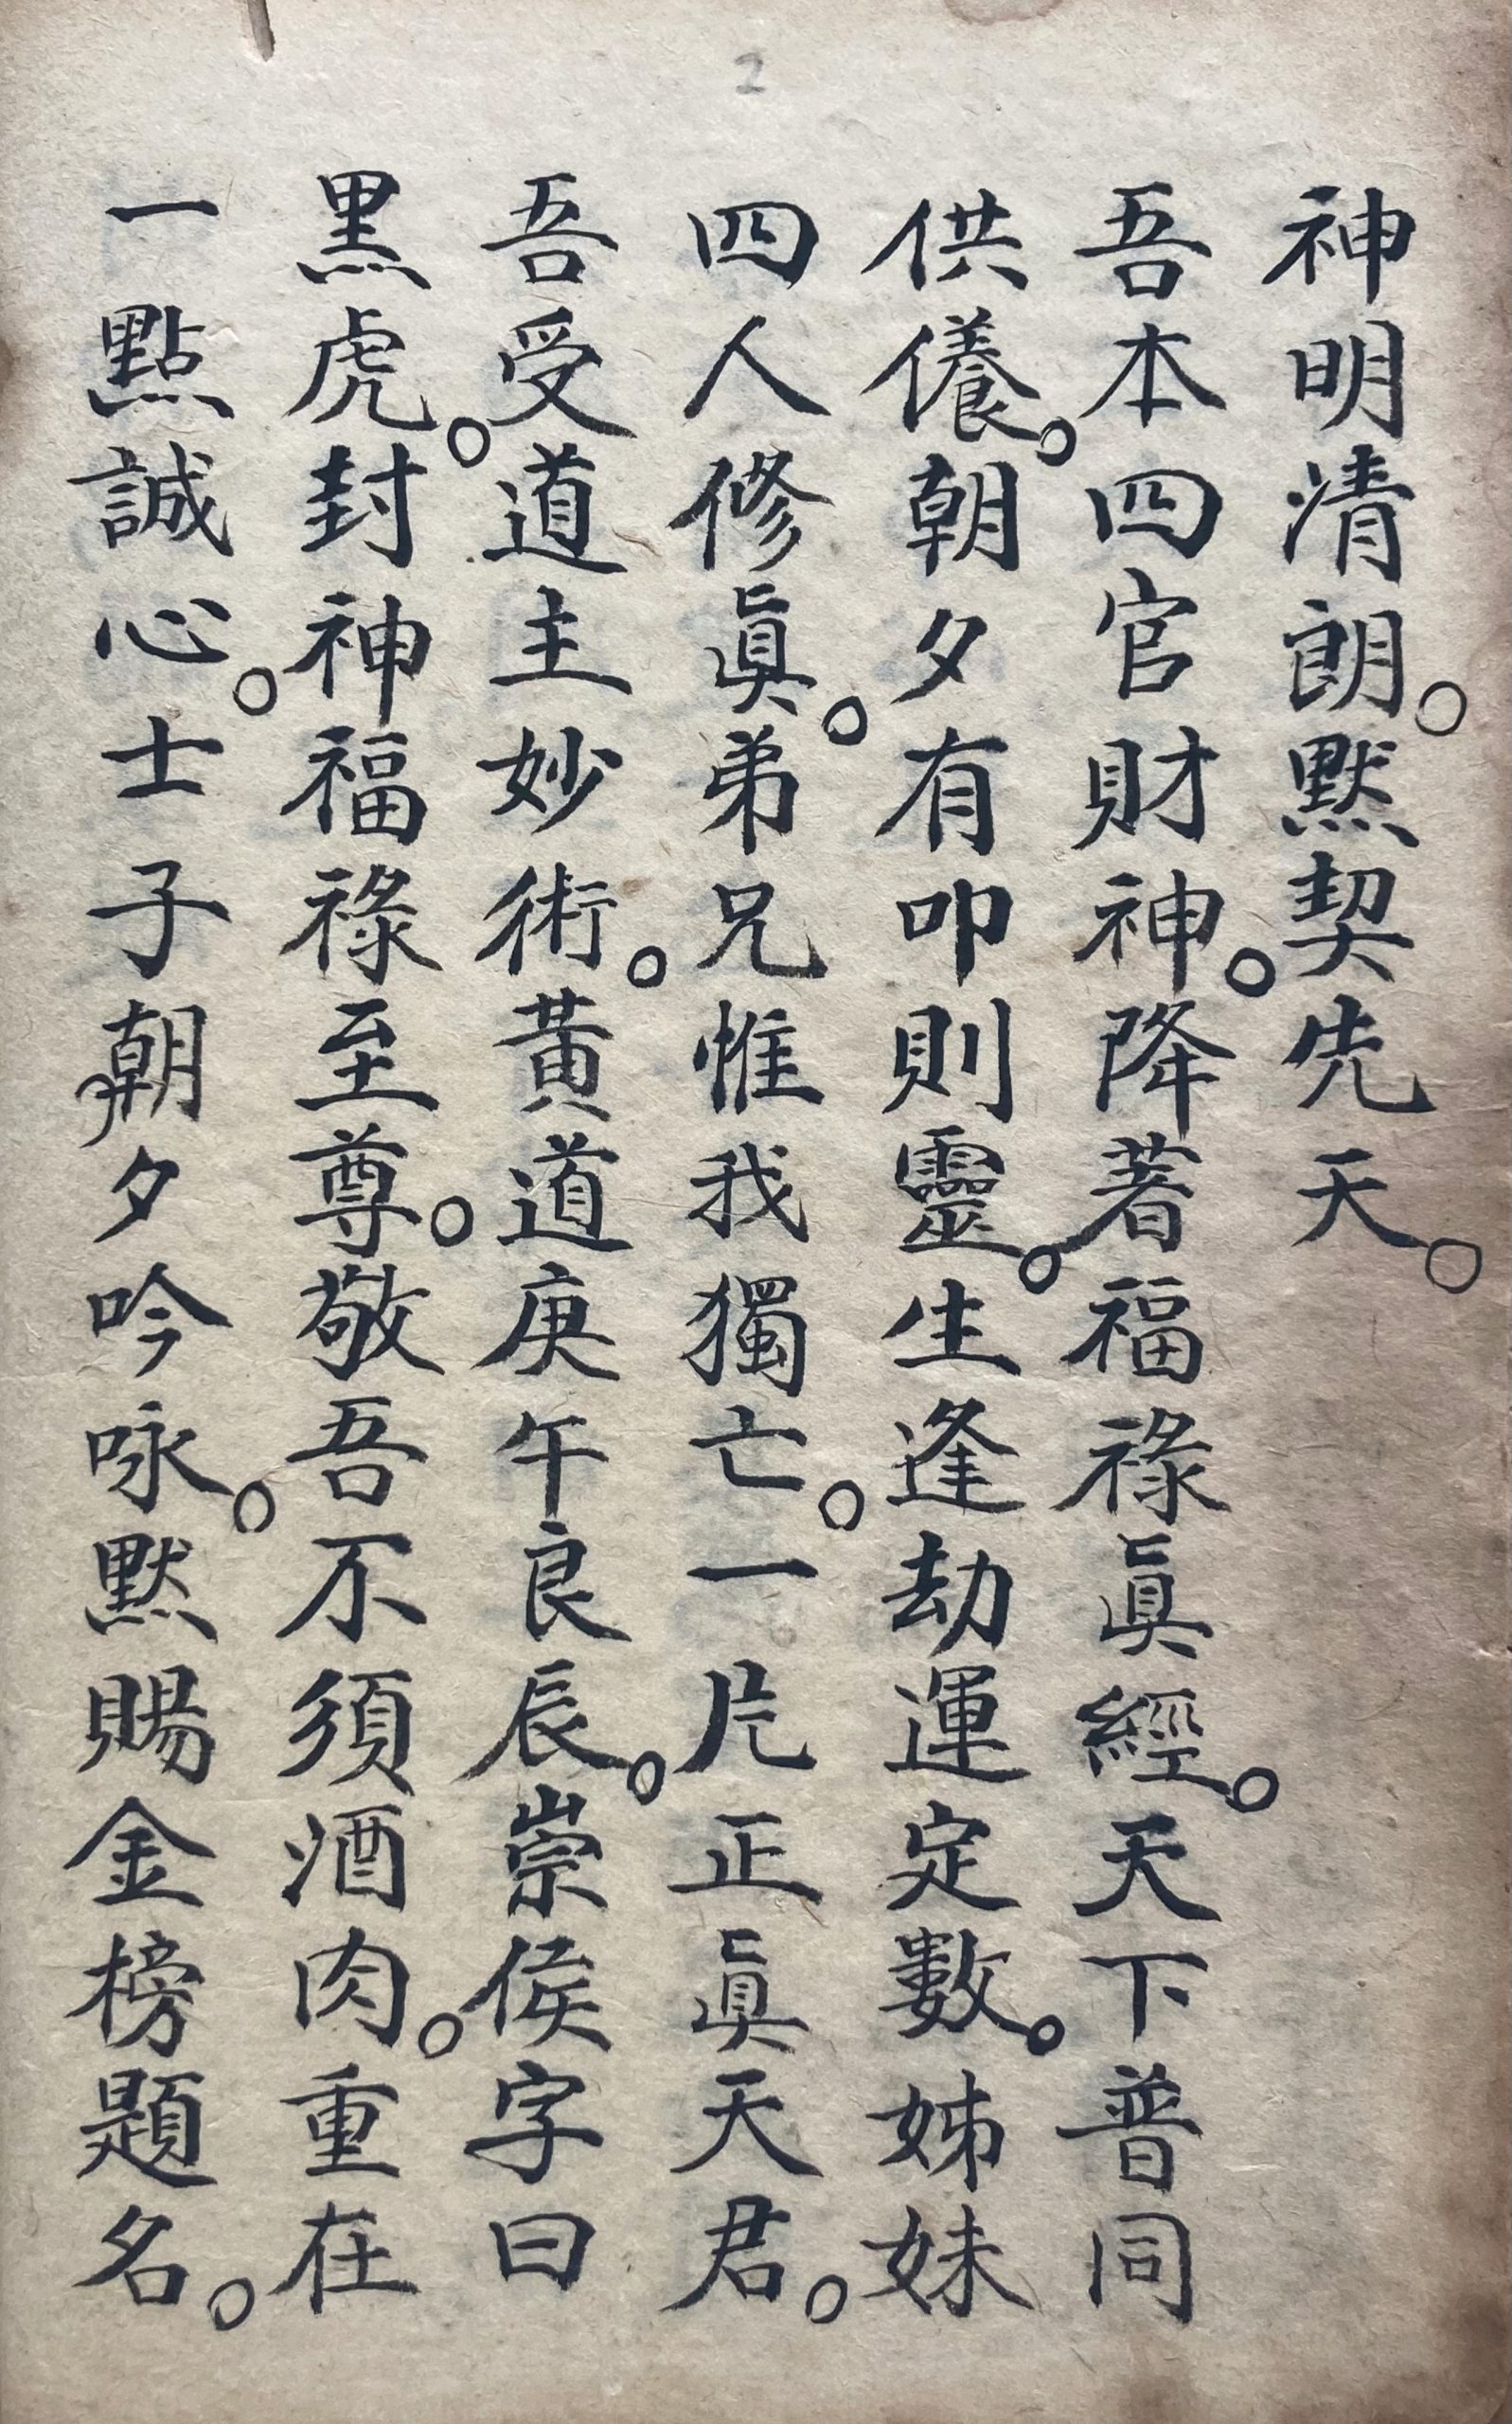 2
神明清朗。默契先天。
吾本四官財神。降著福祿眞經。天下普同
供儀。朝夕有叩則靈。生逢劫運定數。姊妹
四人修眞。弟兄惟我獨亡。一片正眞天君。
吾受道主妙術。黃道庚午良辰。崇侯字曰
黑虎。封神福祿至尊。敬吾不須酒肉。重在
一點誠心。士子朝夕吟咏。默賜金榜題名。